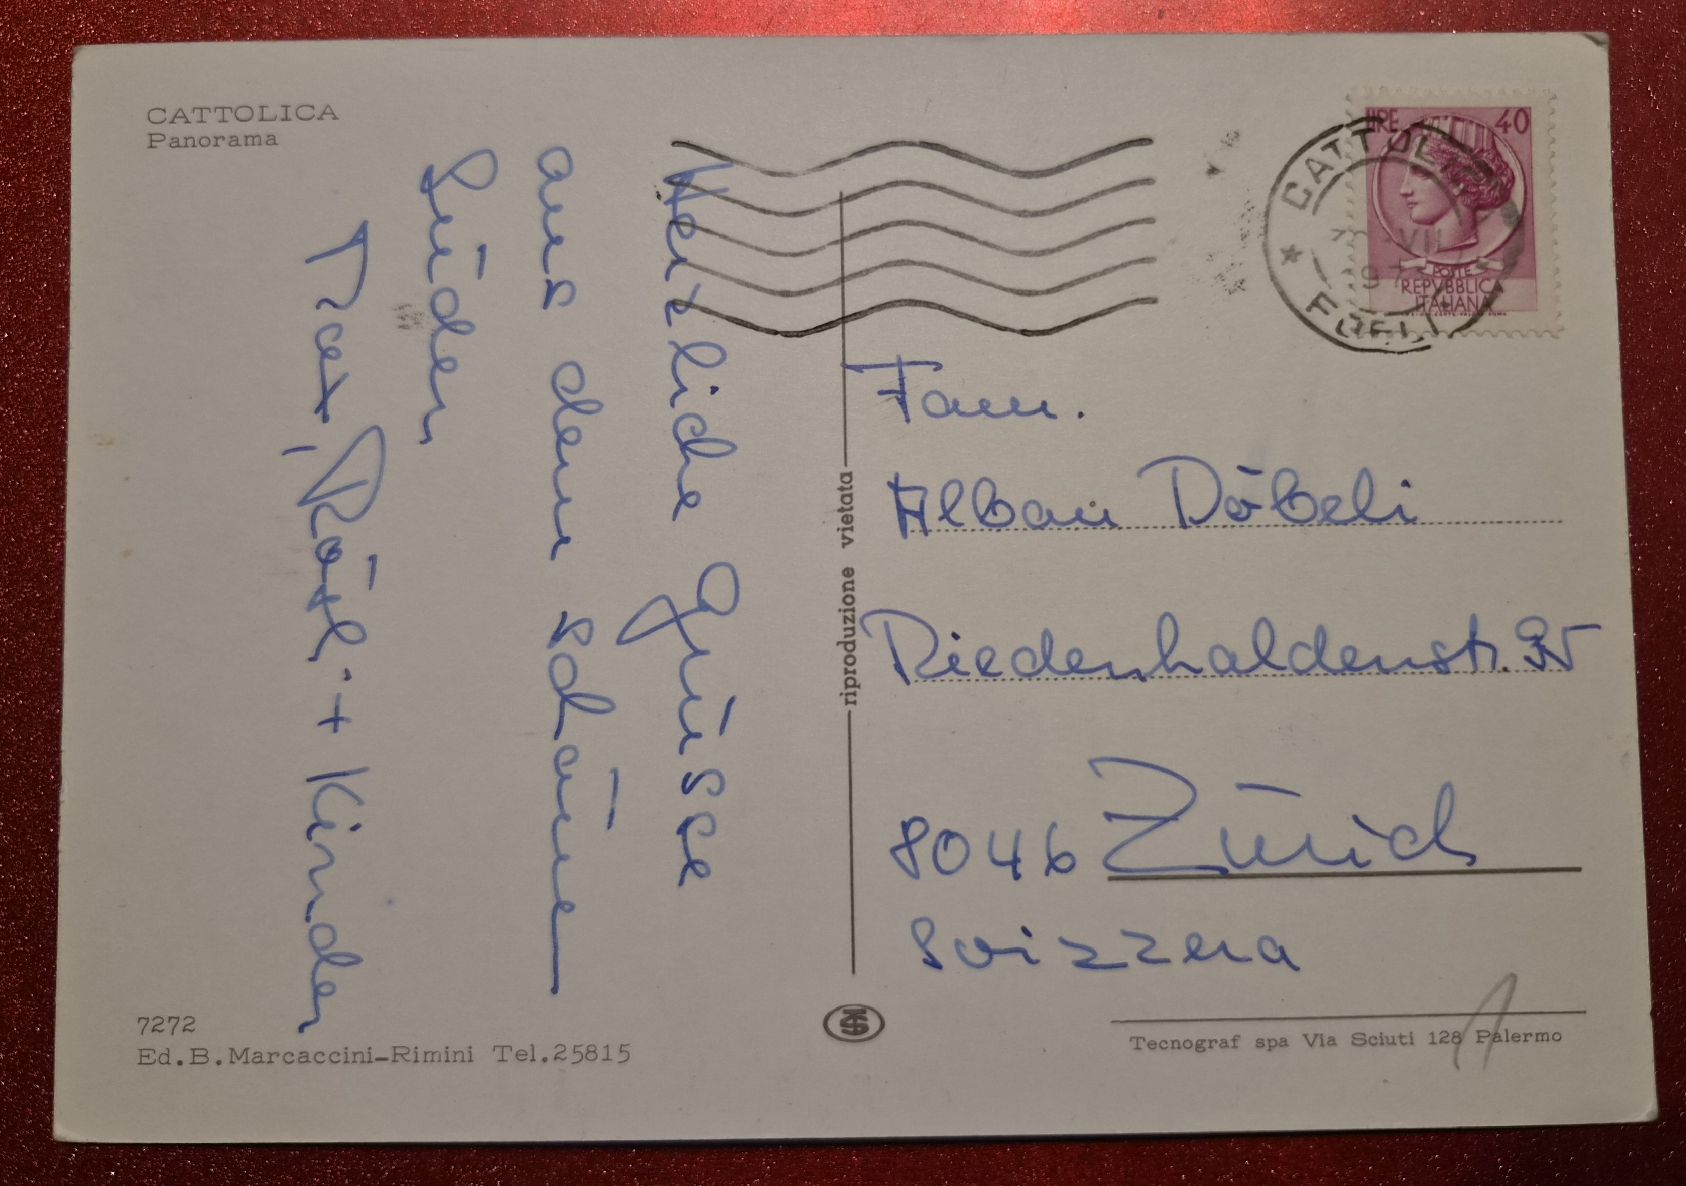 CATTOLICA
Panorama
Herzliche Grüsse
aus dem schönen
Süden
Röslı + Kinder
7272
Ed.B.Marcaccini-Rimini Tel.25815
riproduzione vietata
LIRE 40
POSTE
REPVBBLICA
ITALIANA
CATTOL
VII
FORLI
Fam.
Alban Döbeli
Riedenhaldenstr.
8046 Zürich
Svizzera
Tecnograf spa Via Sciuti 128 Palermo